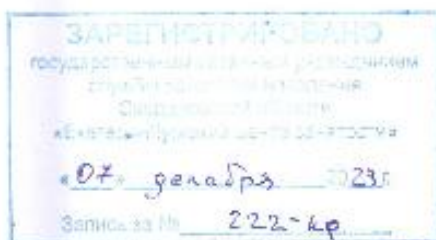 ЗАРЕГИСТРИРОВАНО
государственным казенным учреждением
службы занятости населения
Свердловской области
«Екатеринбургский центр занятости»
«07» декабря 2023 г.
Запись за № 222-кр